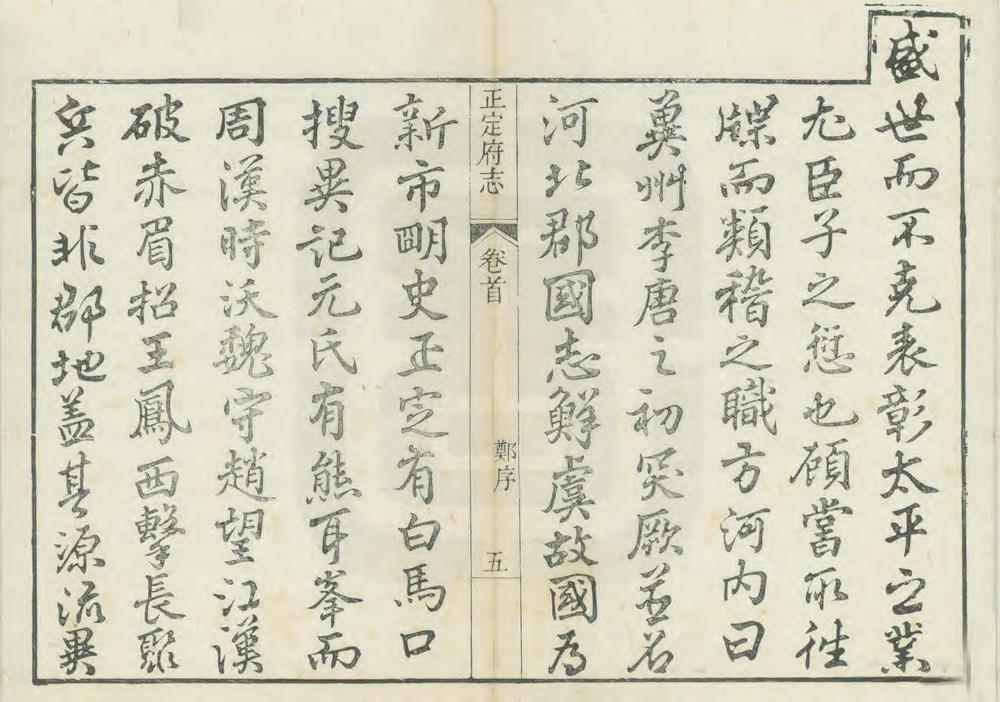 盛世而不克表彰太平之業
尤臣子之愆也顧嘗取往
牒而類稽之職方河內曰
冀州李唐之初突厥並名
河北郡國志鮮虞故國為
正定府志
卷首
鄭序
五
新市明史正定有白馬口
搜異記元氏有熊耳峯而
周漢時沃魏守趙望江漢
破赤眉招王鳳西擊長聚
兵皆非郡地蓋其源流異